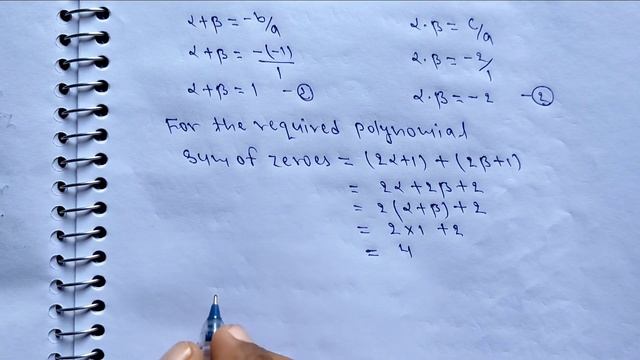 α+β = -b/a
α·β = c/a
α+β = -(-1)/1
α·β = -2/1
α+β = 1 - ②
α·β = -2 - ②
For the required polynomial
Sum of zeroes = (2α+1) + (2β+1)
= 2α+2β+2
= 2(α+β)+2
= 2×1 +2
= 4